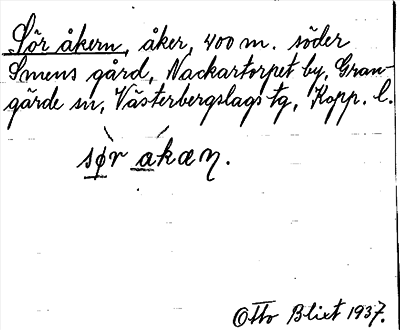 Sör åkern, åker, 400 m. söder
Smens gård, Nackartorpet by, Gran-
gärde sn, Västerbergslags tg, Kopp. l.
sø̀r ákæη.
Otto Blixt 1937.